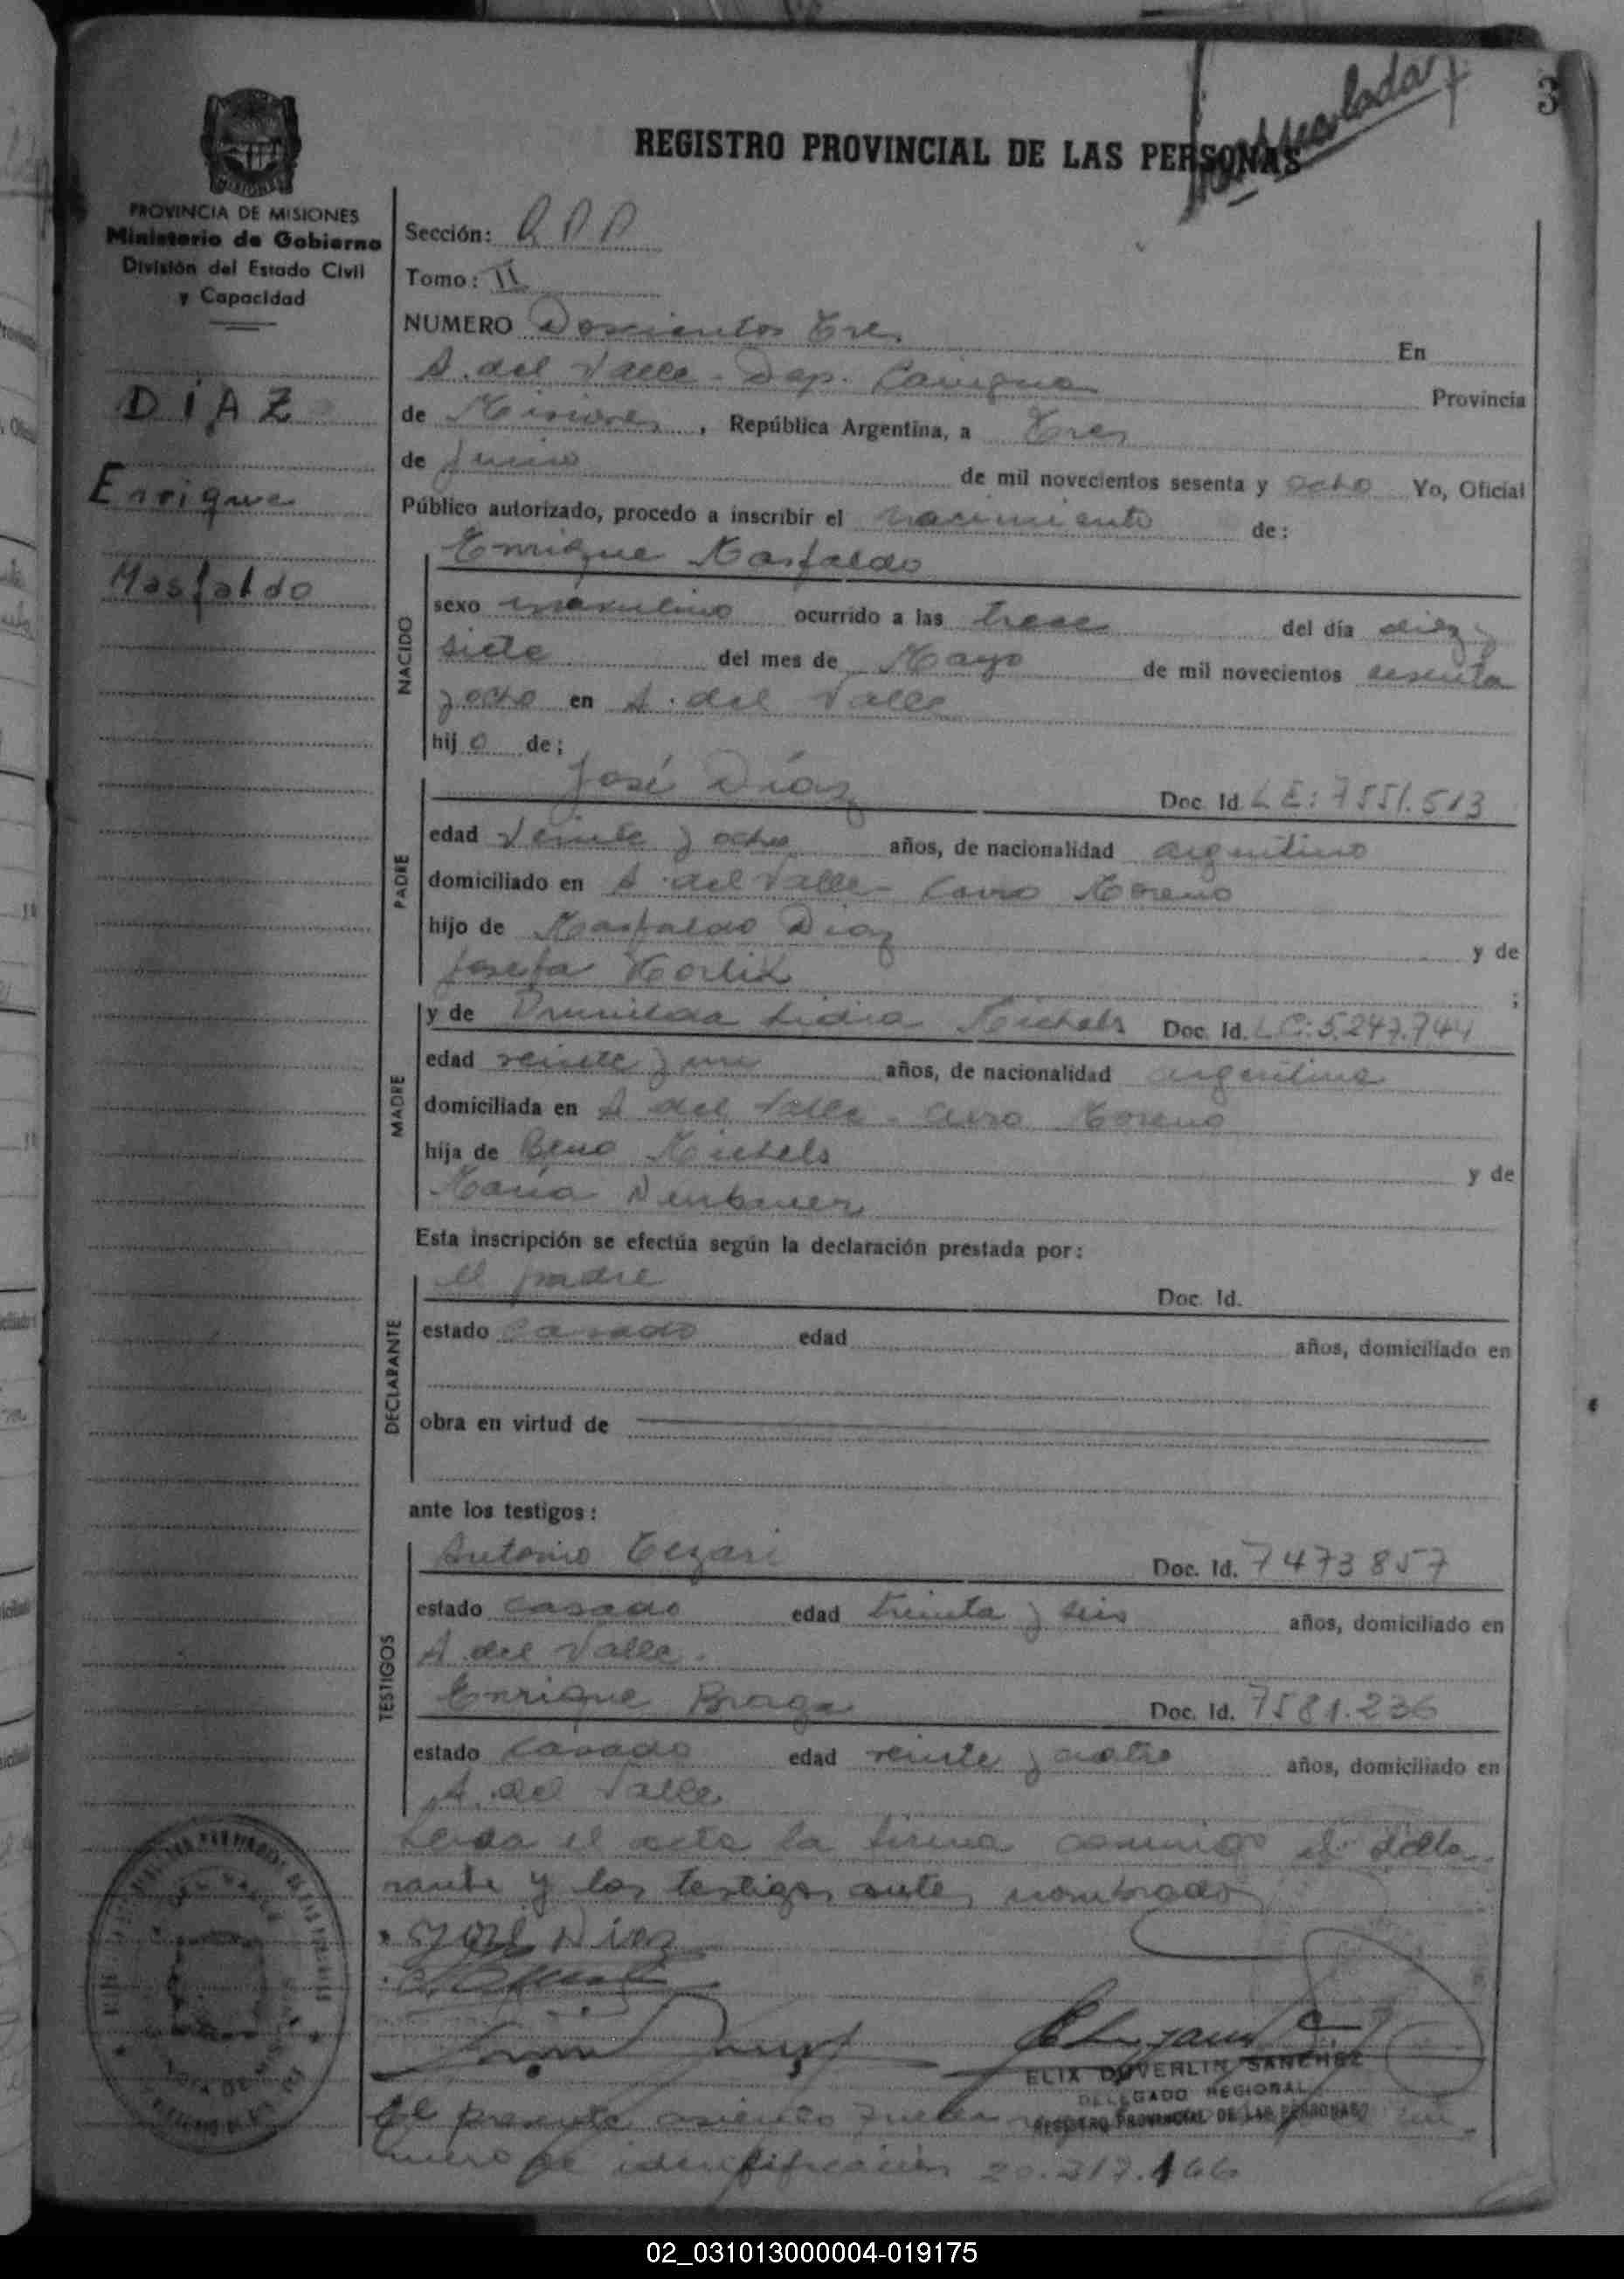 3
REGISTRO PROVINCIAL DE LAS PERSONAS
PROVINCIA DE MISIONES
Ministerio de Gobierno
División del Estado Civil
y Capacidad
DÍAZ
Enrique
Masfaldo
Sección:
Tomo: II
NUMERO Doscientos Tres En
A. del Valle - Dep. Cainguas Provincia
de Misiones, República Argentina, a Tres
de Junio de mil novecientos sesenta y ocho Yo, Oficial
Público autorizado, procedo a inscribir el nacimiento de:
NACIDO
Enrique Masfaldo
sexo masculino ocurrido a las trece del día diez y
siete del mes de Mayo de mil novecientos sesenta
y ocho en A. del Valle
hijo de;
PADRE
José Díaz Doc. Id. LE: 7551.513
edad Veinte y ocho años, de nacionalidad argentino
domiciliado en A. del Valle - Cerro Moreno
hijo de Masfaldo Diaz y de
Josefa ;
MADRE
y de Lidia Michels Doc. Id. LC: 5.247.744
edad veinte y un años, de nacionalidad argentina
domiciliada en A del Valle - Cerro Moreno
hija de Beno Michels y de
María Neubauer
Esta inscripción se efectúa según la declaración prestada por:
DECLARANTE
el padre Doc. Id.
estado casado edad años, domiciliado en
obra en virtud de
ante los testigos:
TESTIGOS
Antonio Doc. Id. 7473857
estado casado edad treinta y seis años, domiciliado en
A. del Valle.
Enrique Braga Doc. Id. 7581.236
estado casado edad veinte y cuatro años, domiciliado en
A. del Valle
Leida el acta la firma conmigo el decla-
rante y los testigos antes nombrados
José Díaz
ELIX DUVERLIN SANCHEZ
DELEGADO REGIONAL
REGISTRO PROVINCIAL DE LAS PERSONAS
El presente asiento
mero de identificación 20.217.166
02_031013000004-019175